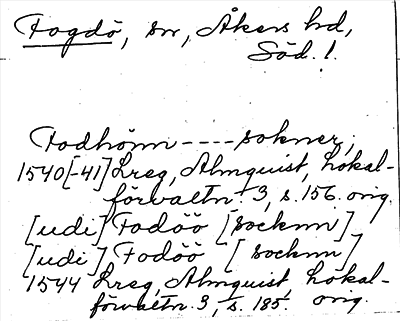 Fogdö, sn, Åkers hd,
Söd. l.
Fodhönn ---- sokner,
1540[-41] Lreg, Almquist, Lokal-
förvaltn. 3, s. 156. orig.
[udi] Fodöö [socknn]
[udi] Fodöö [socknn]
1544 Lreg, Almquist, Lokal-
förvaltn. 3, s. 185. orig.